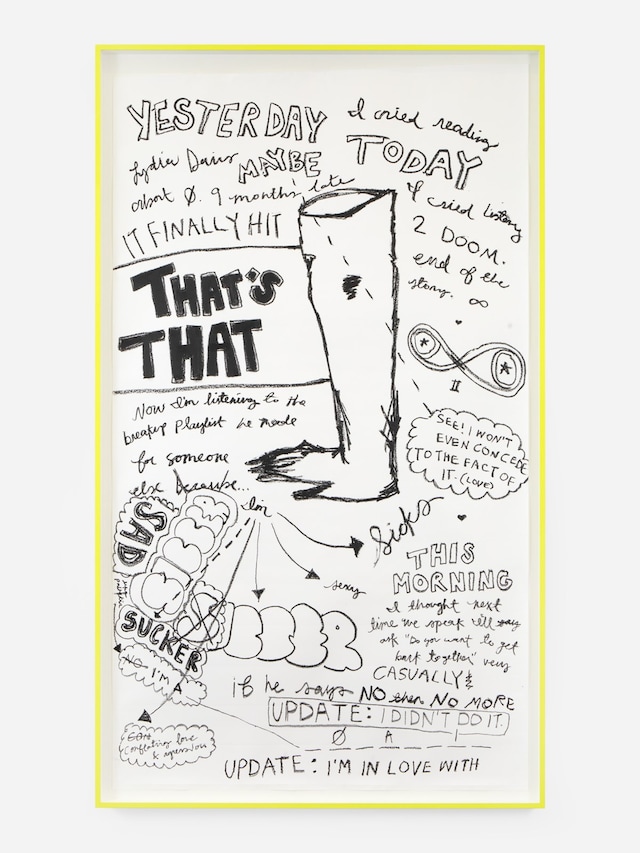 YESTERDAY
I cried reading
Lydia Davis
MAYBE
TODAY
about Ø. 9 months late
IT FINALLY HIT
I cried listening
2 DOOM.
end of the
story. ∞
THAT'S
THAT
II
Now I'm listening to the
breakup playlist he made
for someone
else because...
I'm
SEE! I WON'T
EVEN CONCEDE
TO THE FACT OF
IT. (LOVE)
Sicks
sexy
SAD
SUCKER
NO I'M A
THIS
MORNING
I thought next
time we speak I'll say
ask "Do you want to get
back together" very
CASUALLY &
if he says NO then NO MORE
UPDATE: I DIDN'T DO IT.
Ø A I
Conflating love
&
UPDATE: I'M IN LOVE WITH